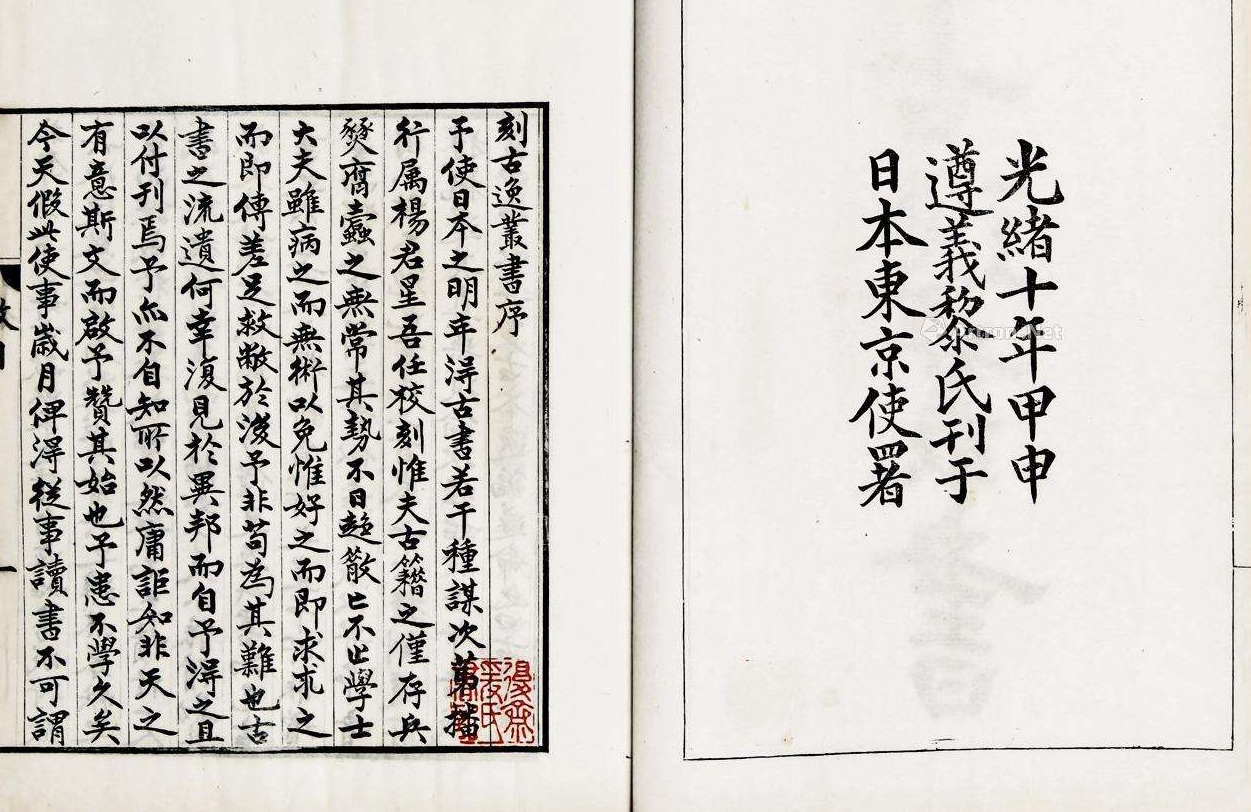 光緒十年甲申
遵義黎氏刊于
日本東京使署
刻古逸叢書序
予使日本之明年得古書若干種謀次第播
行属楊君星吾任校刻惟夫古籍之僅存兵
燹腐蠹之無常其勢不日趨散亡不止學士
大夫雖病之而無術以免惟好之而即求求之
而即傳差足救敝於後予非苟為其難也古
書之流遺何幸復見於異邦而自予得之且
以付刊焉予亦不自知所以然庸詎知非天之
有意斯文而啟予贊其始也予患不學久矣
今天假此使事歲月俾得從事讀書不可謂